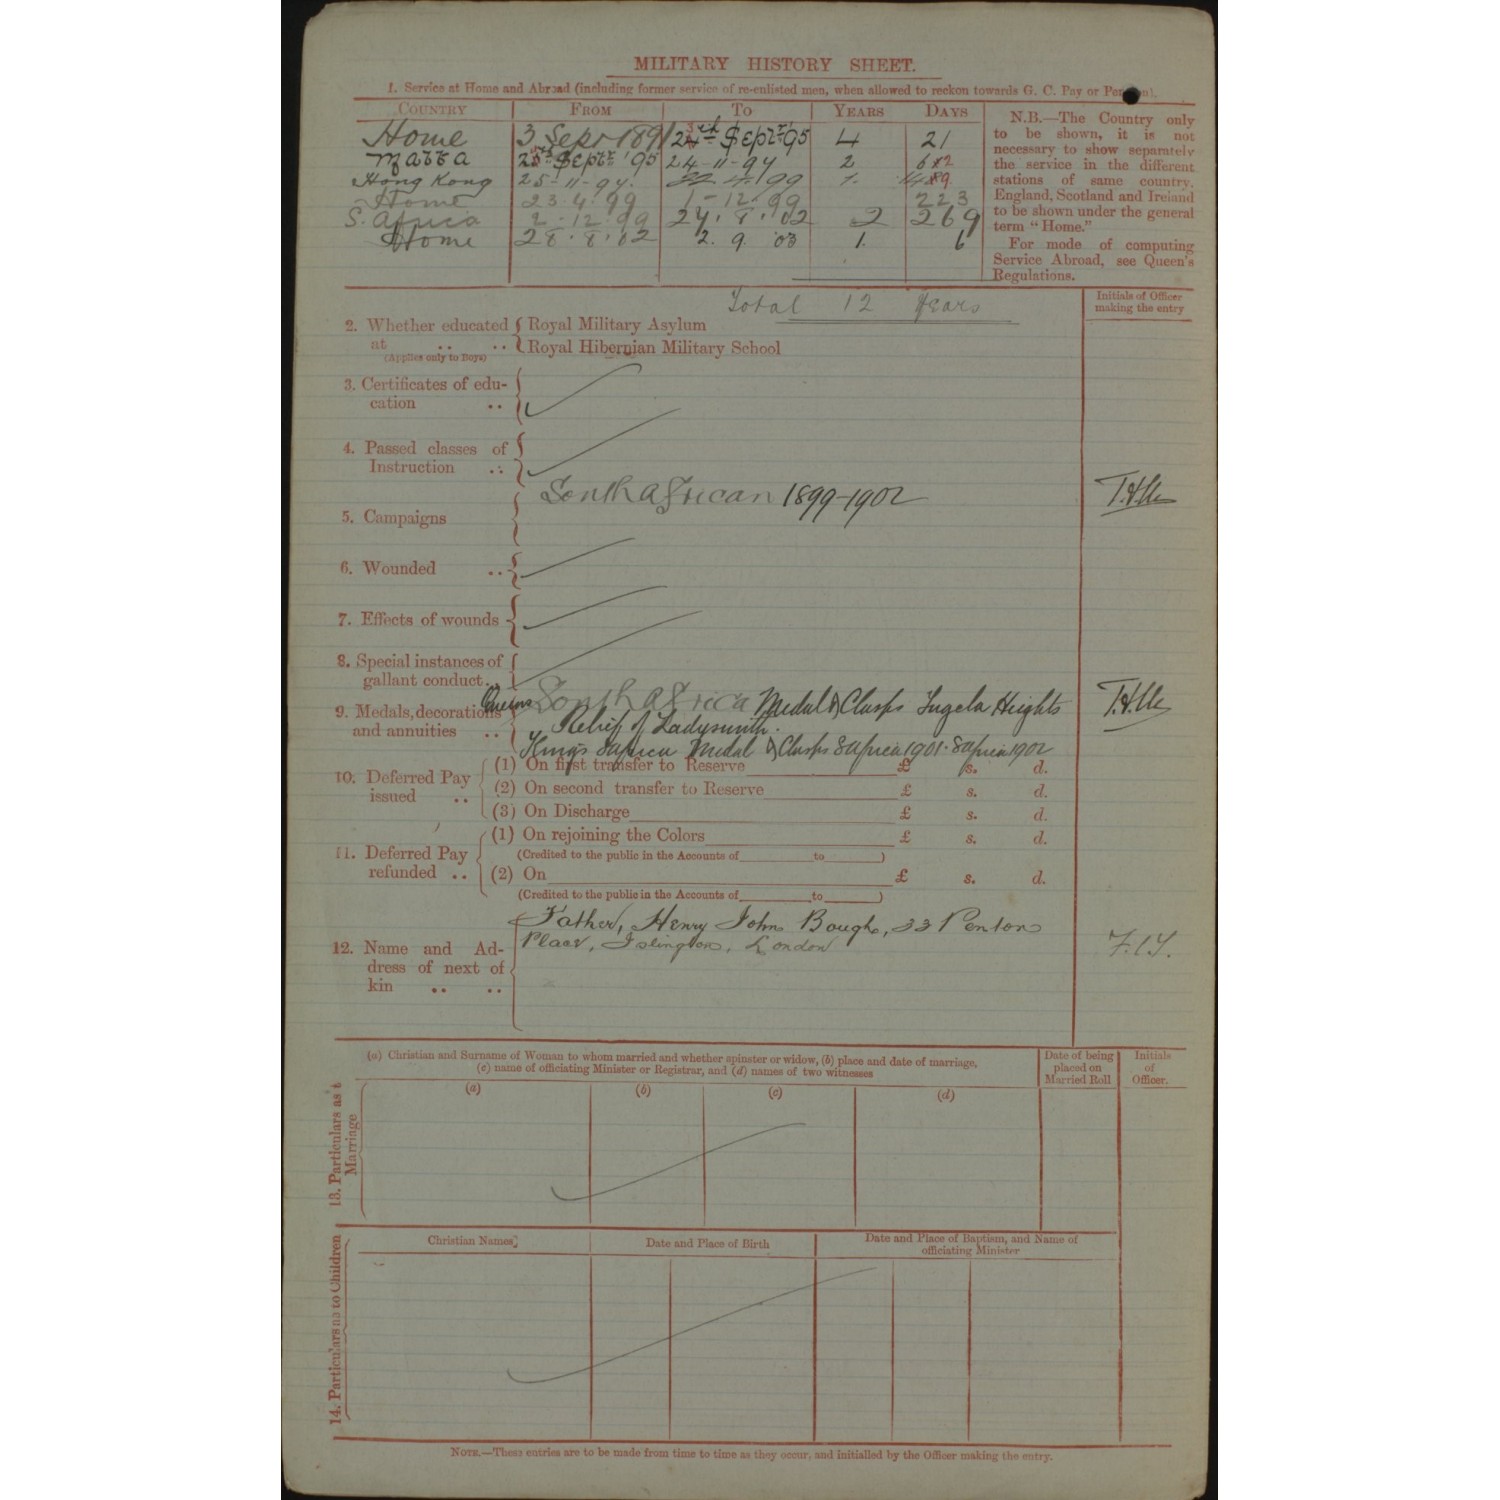 MILITARY HISTORY SHEET.
1. Service at Home and Abroad (including former service of re-enlisted men, when allowed to reckon towards G. C. Pay or Pension).
COUNTRY FROM TO YEARS DAYS
Home 3 Sept 1891 24th Septr '95 4 21
Malta 25th Septr '95 24-11-97 2
Hong Kong 25-11-97. 22 4 99 1.
Home 23.4.99 1-12.99 223
S. Africa 2-12.99 27.8.02 2 269
Home 28.8.02 2. 9. 03 1. 6
N.B.—The Country only
to be shown, it is not
necessary to show separately
the service in the different
stations of same country.
England, Scotland and Ireland
to be shown under the general
term "Home."
For mode of computing
Service Abroad, see Queen's
Regulations.
Total 12 Years
Initials of Officer
making the entry
2. Whether educated Royal Military Asylum
at .. .. Royal Hibernian Military School
(Applies only to Boys)
3. Certificates of edu-
cation ..
4. Passed classes of
Instruction ..
South African 1899-1902
5. Campaigns
6. Wounded ..
7. Effects of wounds
8. Special instances of
gallant conduct..
Queens South Africa Medal & Clasps Tugela Heights
9. Medals, decorations Relief of Ladysmith.
and annuities ..
Kings S Africa Medal & Clasps S Africa 1901. S Africa 1902
10. Deferred Pay (1) On first transfer to Reserve £ s. d.
issued .. (2) On second transfer to Reserve £ s. d.
(3) On Discharge £ s. d.
11. Deferred Pay (1) On rejoining the Colors £ s. d.
(Credited to the public in the Accounts of to )
refunded .. (2) On £ s. d.
(Credited to the public in the Accounts of to )
Father, Henry John Bough, 33 Penton
Place, Islington, London
12. Name and Ad-
dress of next of
kin .. ..
(a) Christian and Surname of Woman to whom married and whether spinster or widow, (b) place and date of marriage,
(c) name of officiating Minister or Registrar, and (d) names of two witnesses
Date of being
placed on
Married Roll
Initials
of
Officer.
13. Particulars as to
Marriage
(a) (b) (c) (d)
14. Particulars as to Children
Christian Names Date and Place of Birth Date and Place of Baptism, and Name of
officiating Minister
NOTE.—These entries are to be made from time to time as they occur, and initialled by the Officer making the entry.